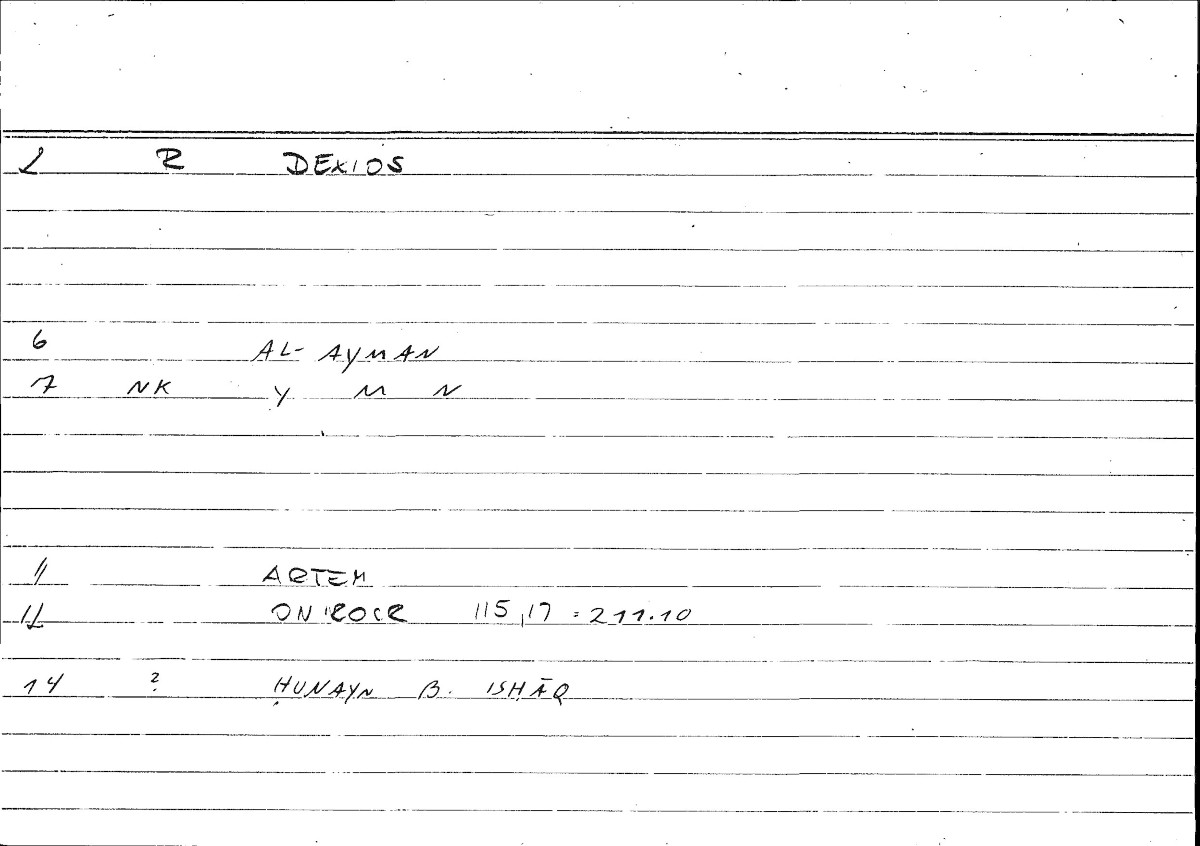 2 R DEXIOS
6 AL-AYMAN
7 NK Y M N
11 ARTEM
12 ONIROCR 115,17 = 211.10
14 ? ḤUNAYN B. ISḤĀQ